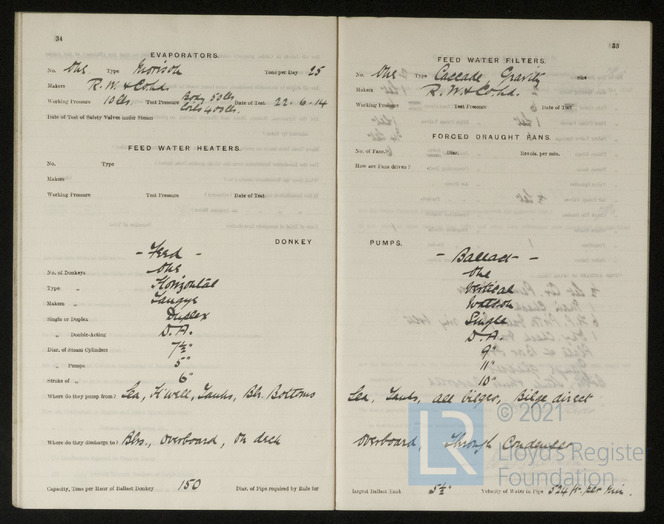 34
EVAPORATORS.
No. One Type Morison Tons per Day 25
Makers R. W. & Co. Ltd.
Working Pressure 10 lbs Test Pressure Body 50 lbs Coils 400 lbs. Date of Test 22-6-14
Date of Test of Safety Valves under Steam
FEED WATER HEATERS.
No. Type
Makers
Working Pressure Test Pressure Date of Test
DONKEY
- Feed -
No. of Donkeys One
Type „ Horizontal
Makers „ Tangye
Single or Duplex Duplex
„ Double-Acting D.A.
Diar. of Steam Cylinders 7½"
„ Pumps 5"
Stroke of „ 6"
Where do they pump from? Sea, H'well, Tanks, Blr. Bottoms
Where do they discharge to? Blrs., Overboard, On deck
Capacity, Tons per Hour of Ballast Donkey 150 Diar. of Pipe required by Rule for
FEED WATER FILTERS.
No. One Type Cascade, Gravity Size
Makers R. W. & Co. Ltd.
Working Pressure Test Pressure Date of Test
FORCED DRAUGHT FANS.
No. of Fans Diar. Revols. per min.
How are Fans driven?
PUMPS.
- Ballast -
One
Vertical
Watson
Single
D.A.
9"
11"
10"
Sea, Tanks, all bilges, Bilge direct
overboard, Through Condenser
largest Ballast Tank 5½" Velocity of Water in Pipe 524 ft. per min.
LR
© 2021
Lloyd's Register
Foundation